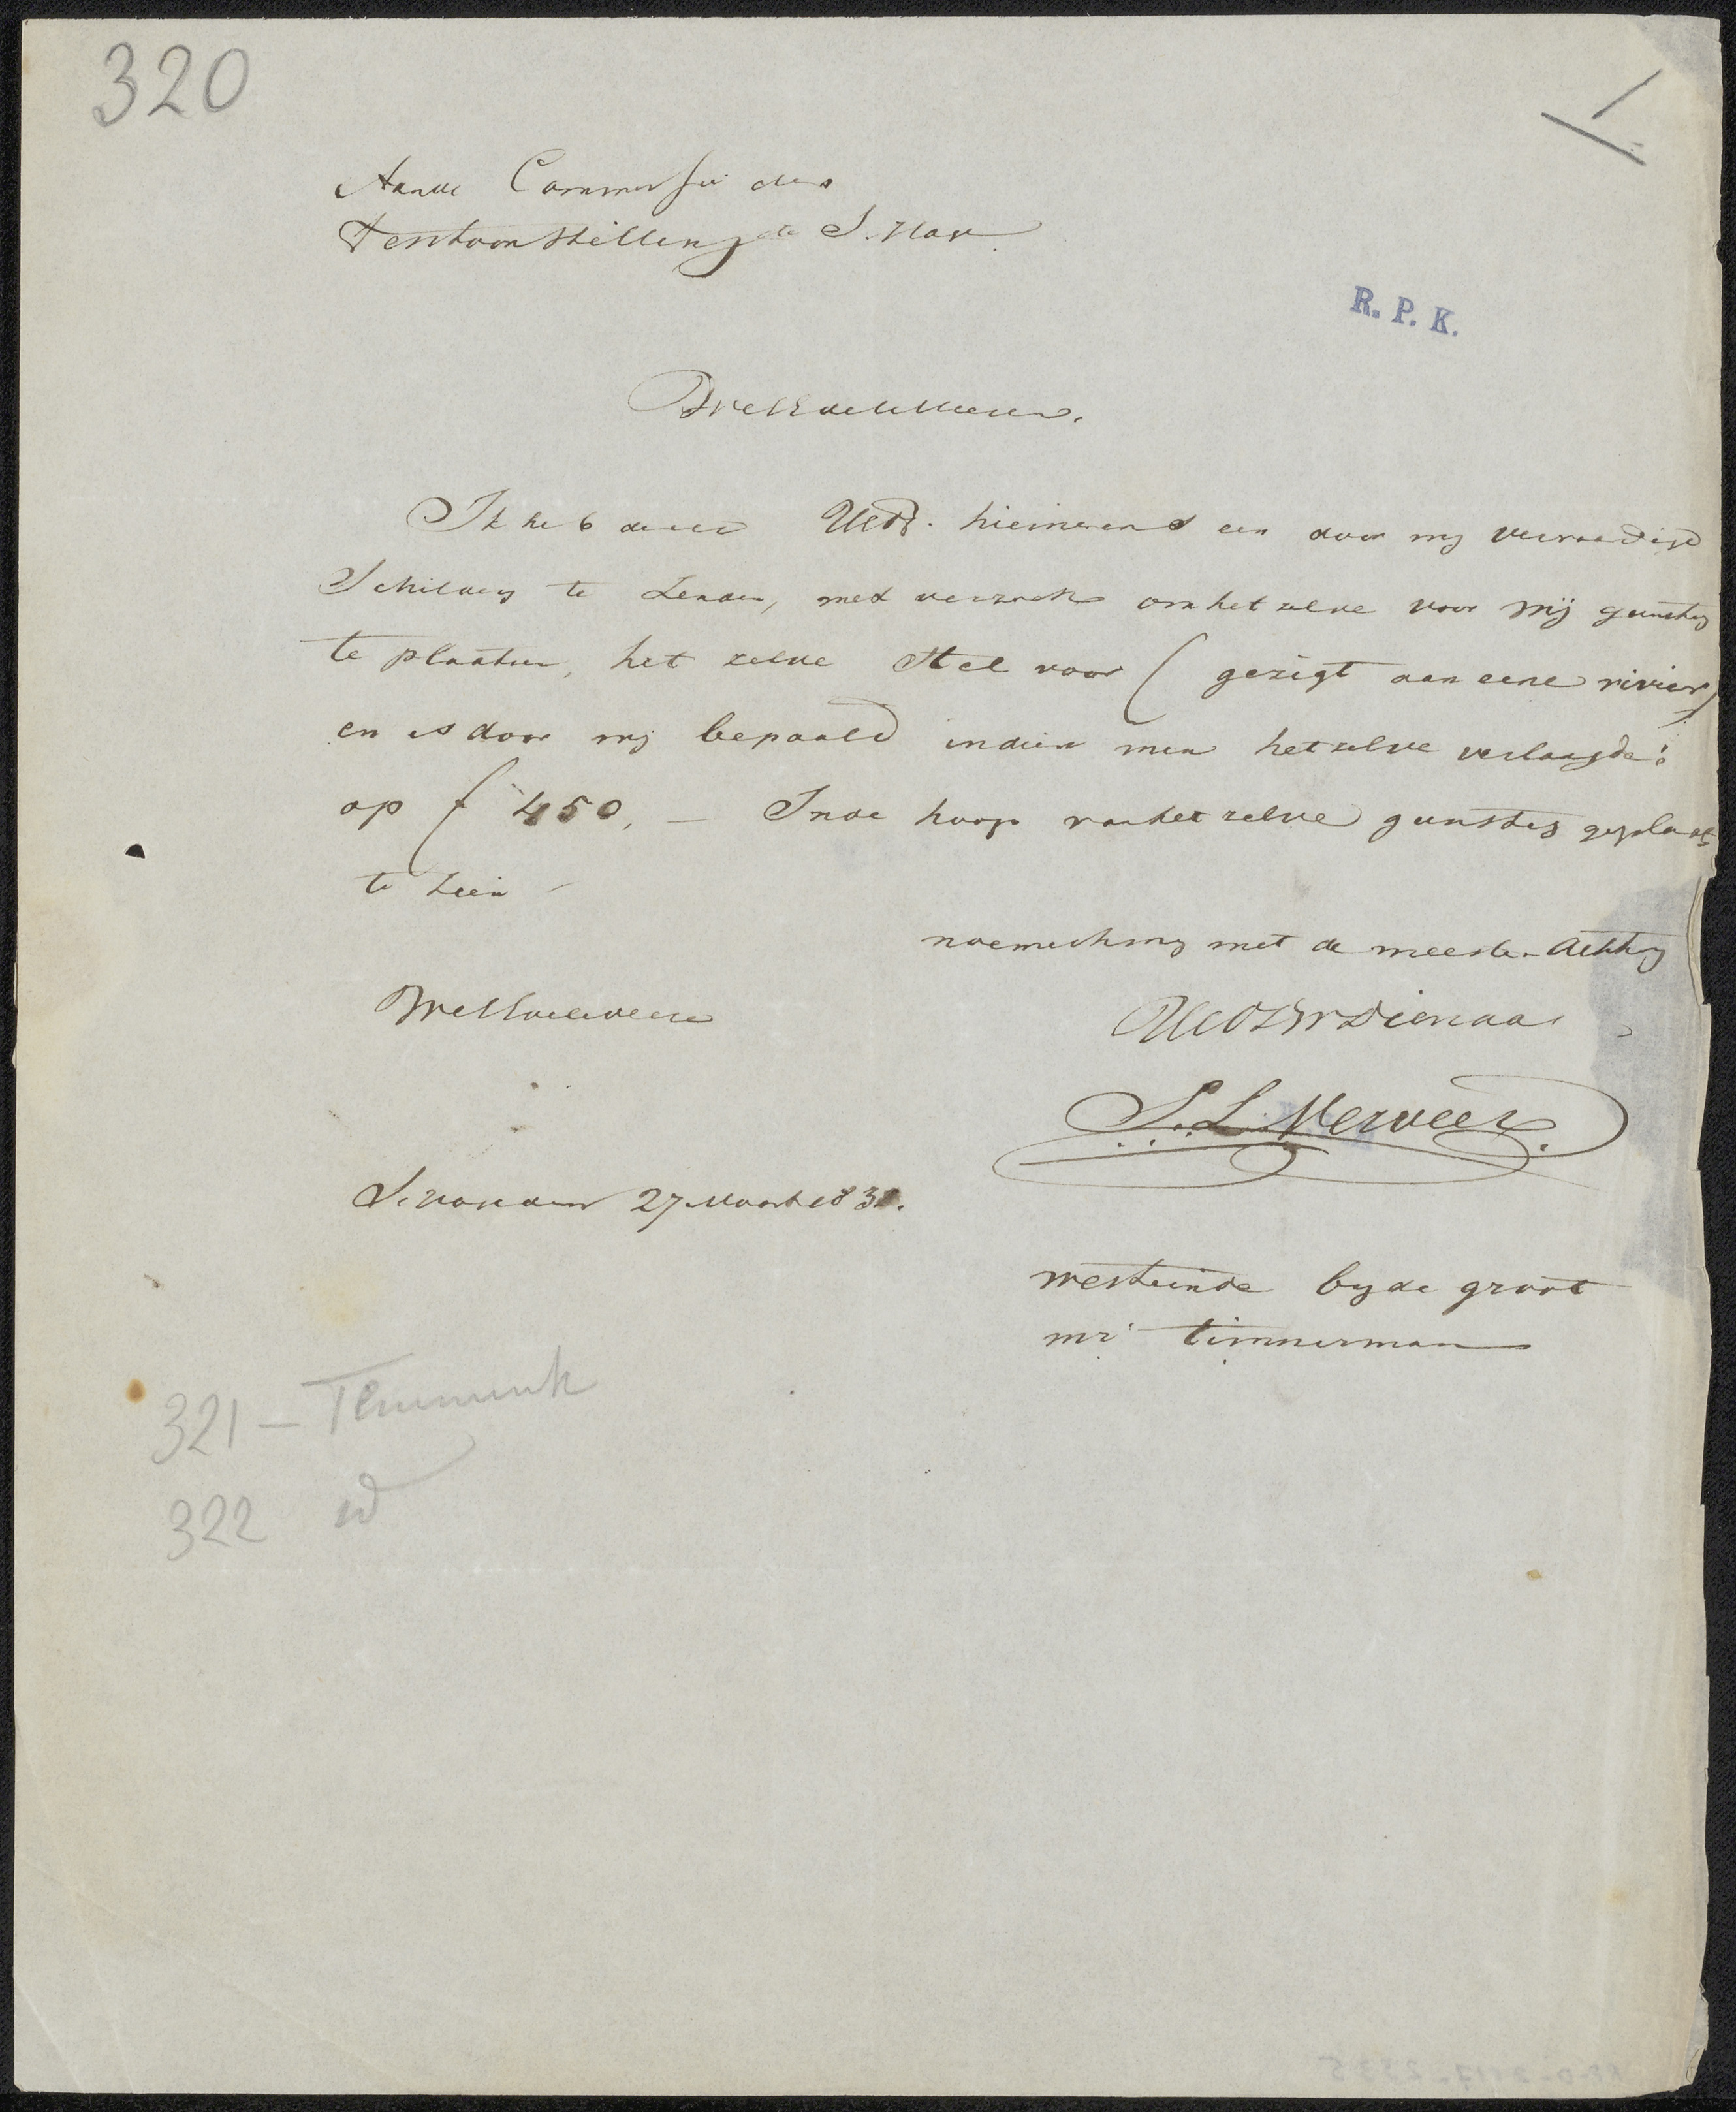 320
Aan de Commissie der
Tentoonstelling te S. Hag.
R. P. K.
WelEdeleHeeren.
Ik heb de eer UEd. hiernevens een door mij vervaardigd
Schilderij te zenden, met verzoek om het zelve voor mij gunstig
te plaatsen, het zelve stel voor ( gezigt aan eene rivier )
en is door mij bepaald indien men hetzelve verlangde:
op f 450, — In de hoop van het zelve gunstig geplaatst
te zien
noem ik mij met de meeste Achting
WelEdeleHeeren
UEd DW Dienaar
S. L. Verveer.
27 Maart 183
westeinde bij de groot
mr timmerman
321 — Temminck
322 id